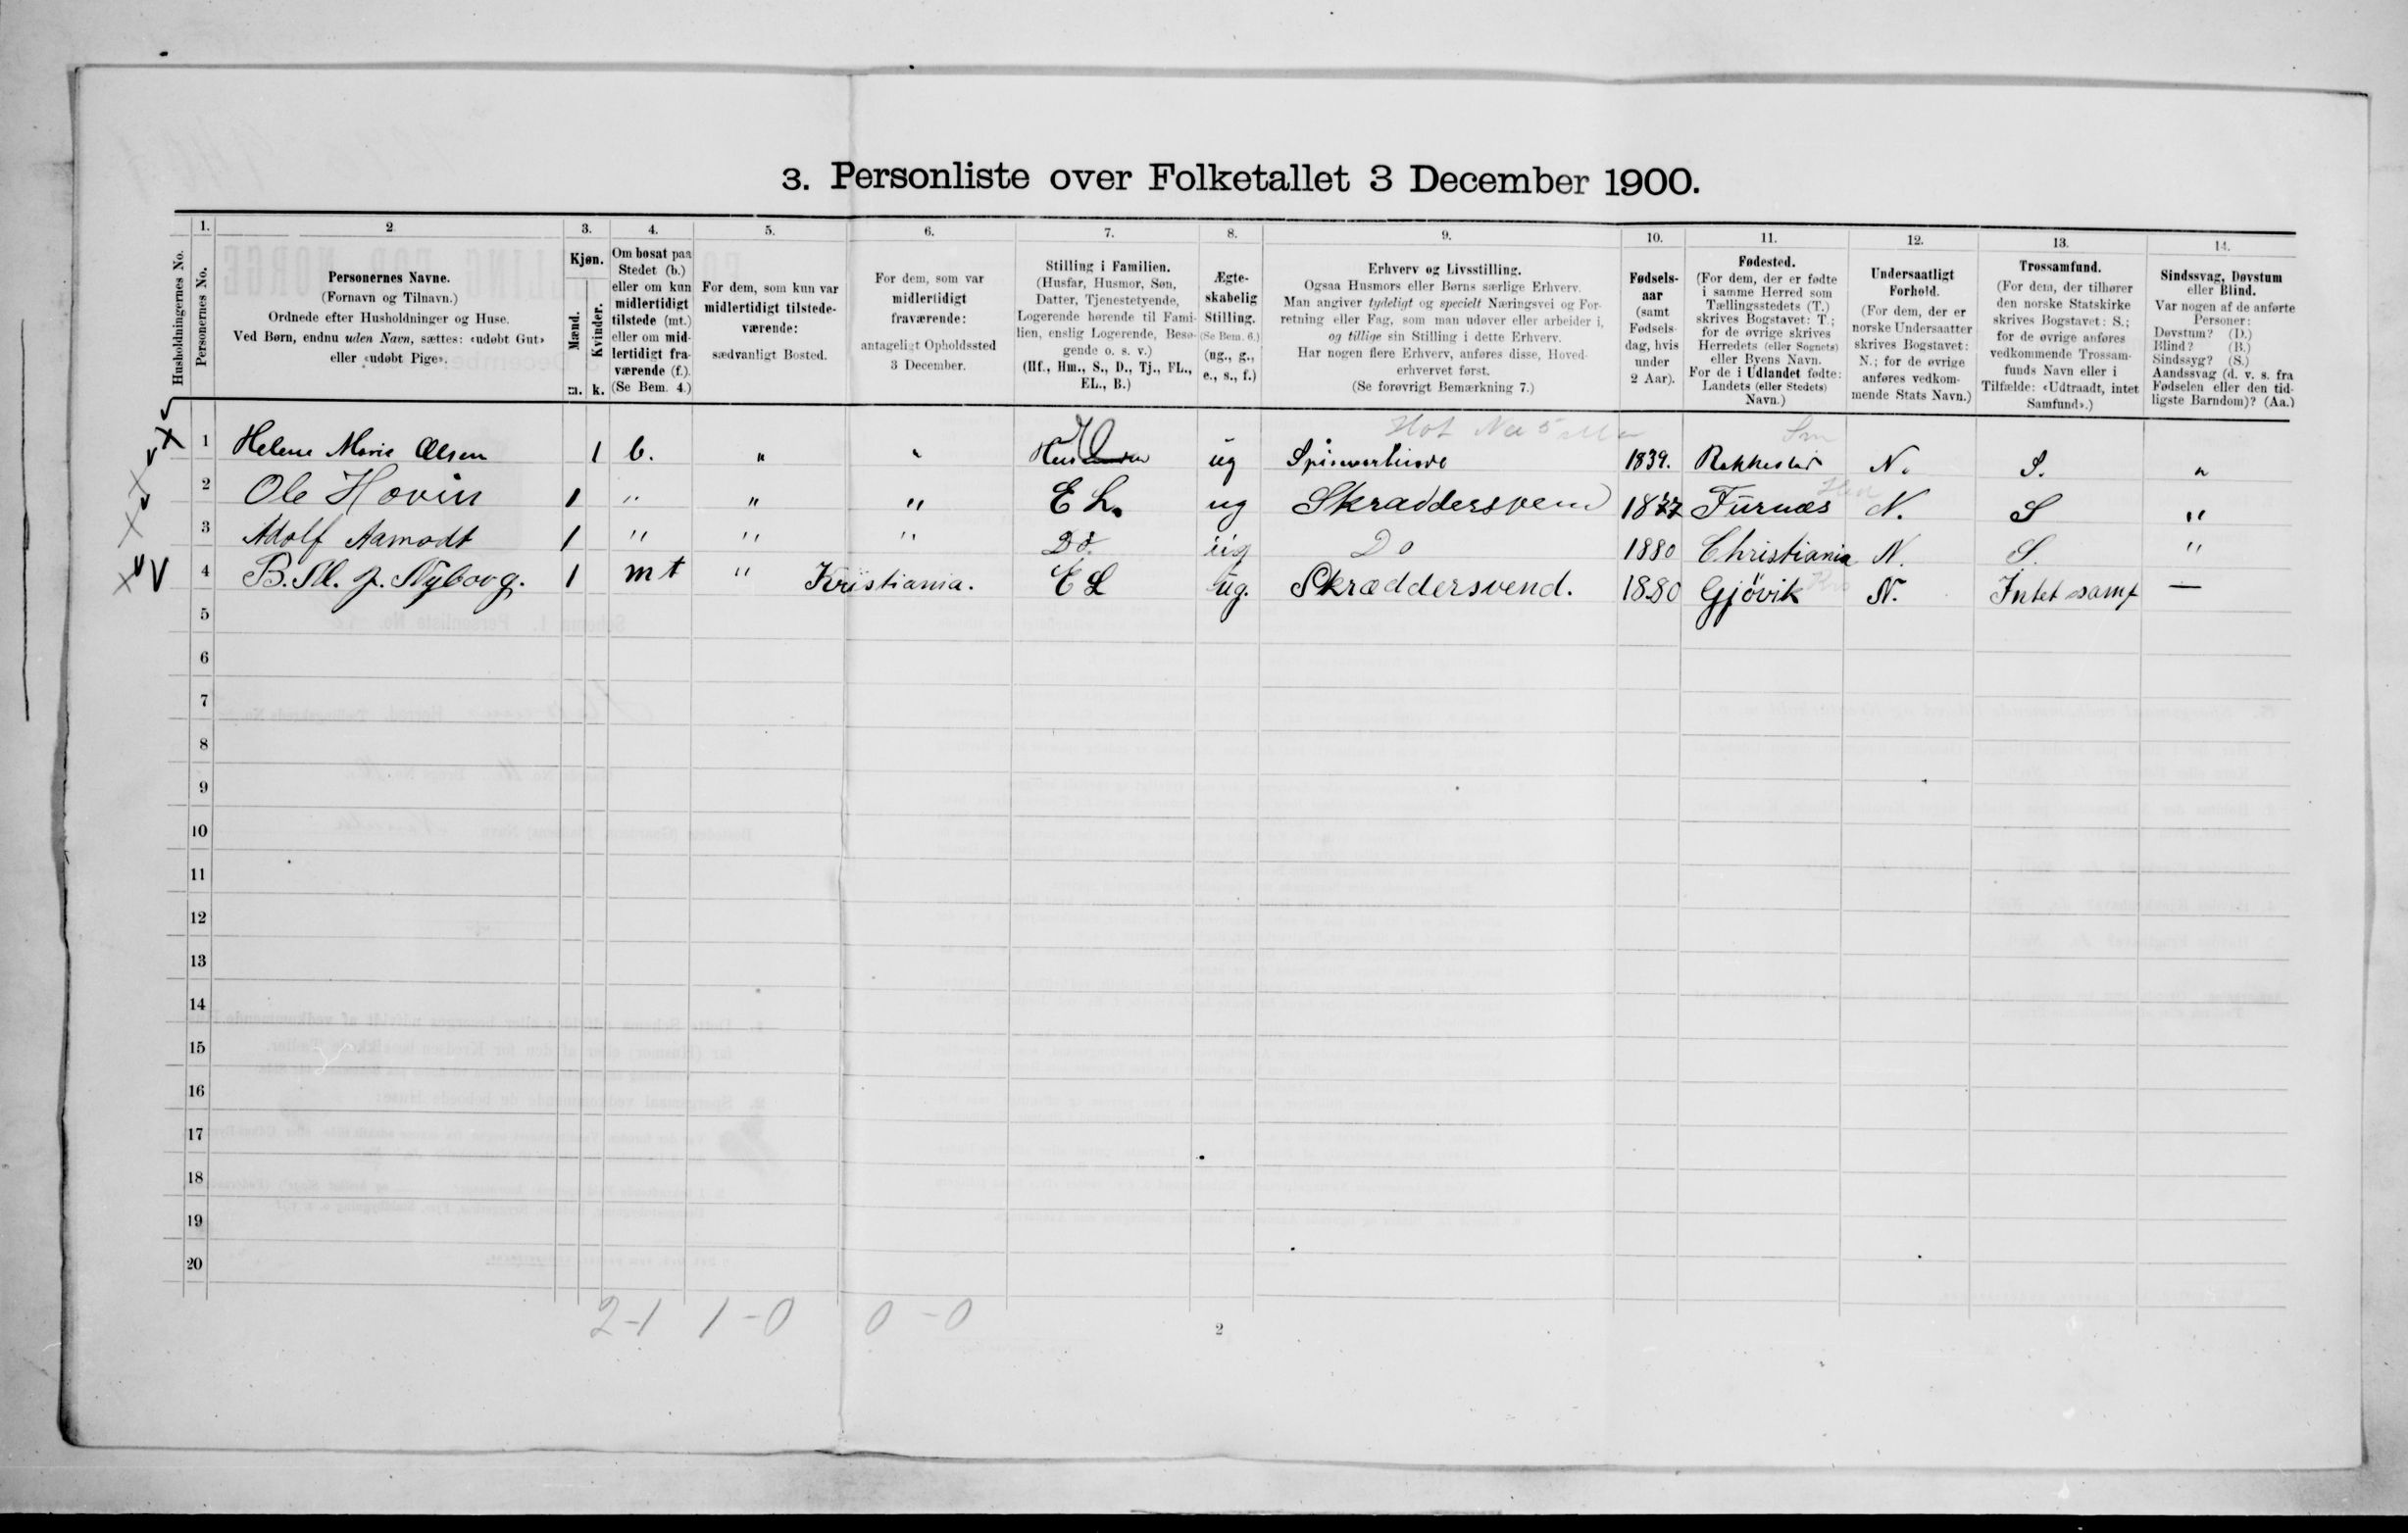 3. Personliste over Folketallet 3 December 1900.
Husholdningernes No.
1.
Personernes No.
2
Personernes Navne.
(Fornavn og Tilnavn.)
Ordnede efter Husholdninger og Huse.
Ved Børn, endnu uden Navn, sættes: «udøbt Gut»
eller «udøbt Pige».
3.
Kjøn.
Mænd.
Kvinder.
m. k.
4.
Om bosat paa
Stedet (b.)
eller om kun
midlertidigt
tilstede (mt.)
eller om mid-
lertidigt fra-
værende (f.).
(Se Bem. 4.)
5.
For dem, som kun var
midlertidigt tilstede-
værende:
sædvanligt Bosted.
6.
For dem, som var
midlertidigt
fraværende:
antageligt Opholdssted
3 December.
7.
Stilling i Familien.
(Husfar, Husmor, Søn,
Datter, Tjenestetyende,
Logerende hørende til Fami-
lien, enslig Logerende, Besø-
gende o. s. v.)
(Hf., Hm., S., D., Tj., FL.,
EL., B.)
8.
Ægte-
skabelig
Stilling.
(Se Bem. 6.)
(ug., g.,
e., s., f.)
9.
Erhverv og Livsstilling.
Ogsaa Husmors eller Børns særlige Erhverv.
Man angiver tydeligt og specielt Næringsvei og For-
retning eller Fag, som man udøver eller arbeider i,
og tillige sin Stilling i dette Erhverv.
Har nogen flere Erhverv, anføres disse, Hoved-
erhvervet først.
(Se forøvrigt Bemærkning 7.)
10.
Fødsels-
aar
(samt
Fødsels-
dag, hvis
under
2 Aar).
11.
Fødested.
(For dem, der er fødte
i samme Herred som
Tællingsstedets (T.)
skrives Bogstavet: T.;
for de øvrige skrives
Herredets (eller Sognets)
eller Byens Navn.
For de i Udlandet fødte:
Landets (eller Stedets)
Navn.)
12.
Undersaatligt
Forhold.
(For dem, der er
norske Undersaatter
skrives Bogstavet:
N.; for de øvrige
anføres vedkom-
mende Stats Navn.)
13.
Trossamfund.
(For dem, der tilhører
den norske Statskirke
skrives Bogstavet: S.;
for de øvrige anføres
vedkommende Trossam-
funds Navn eller i
Tilfælde: «Udtraadt, intet
Samfund».)
14.
Sindssvag, Døvstum
eller Blind.
Var nogen af de anførte
Personer:
Døvstum? (D.)
Blind? (B.)
Sindssyg? (S.)
Aandssvag (d. v. s. fra
Fødselen eller den tid-
ligste Barndom)? (Aa.)
1 Helene Marie Olsen 1 b. " " ug 1839. N. S. "
2 Ole Hovin 1 " " " E L. ug Skraddersvend 1877 Furnæs N. S "
3 Adolf Aamodt 1 " " " Do. ug Do 1880 Christiania N. S. "
4 B. M. J. Nyborg. 1 mt " Kristiania. E L ug. Skræddersvend. 1880 Gjövik N. Intet samf —
5
6
7
8
9
10
11
12
13
14
15
16
17
18
19
20
2-1 1-0 0-0
2